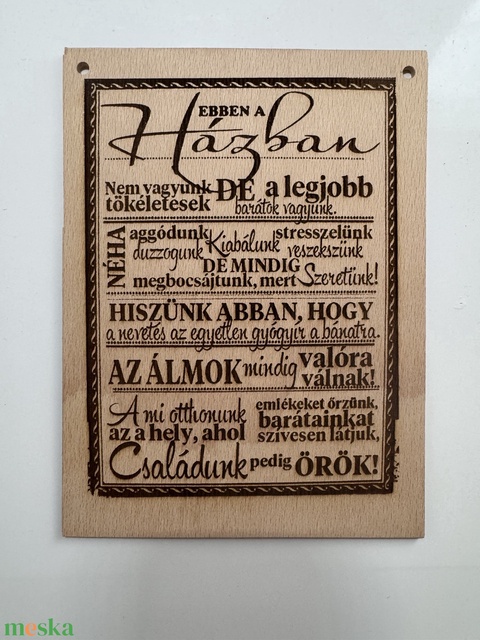 EBBEN A
Házban
Nem vagyunk DE a legjobb
tökéletesek barátok vagyunk.
NÉHA
aggódunk Kiabálunk stresszelünk
duzzogunk veszekszünk
DE MINDIG
megbocsájtunk, mert Szeretünk!
HISZÜNK ABBAN, HOGY
a nevetés az egyetlen gyógyír a bánatra.
AZ ÁLMOK mindig valóra
válnak!
A mi otthonunk emlékeket őrzünk,
az a hely, ahol barátainkat
szívesen látjuk,
Családunk pedig ÖRÖK!
meska